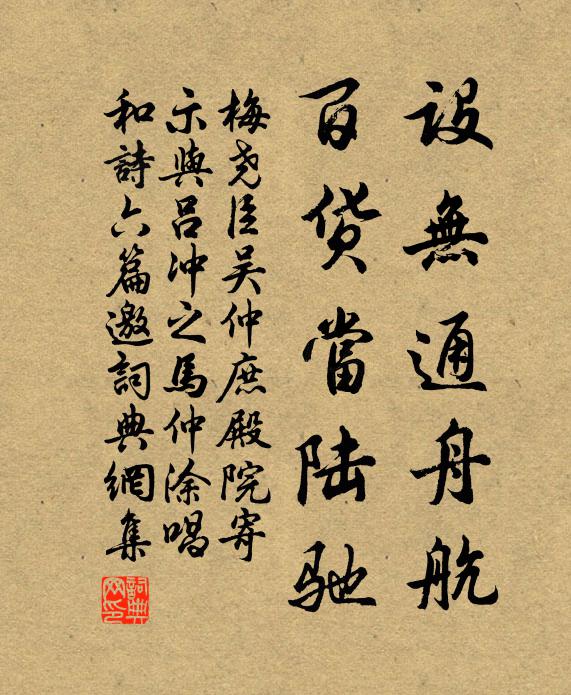 設無通舟航
百貨當陸馳
梅堯臣吳仲庶殿院寄
示與呂冲之馬仲涂唱
和詩六篇邀詞典網集
詞典网印